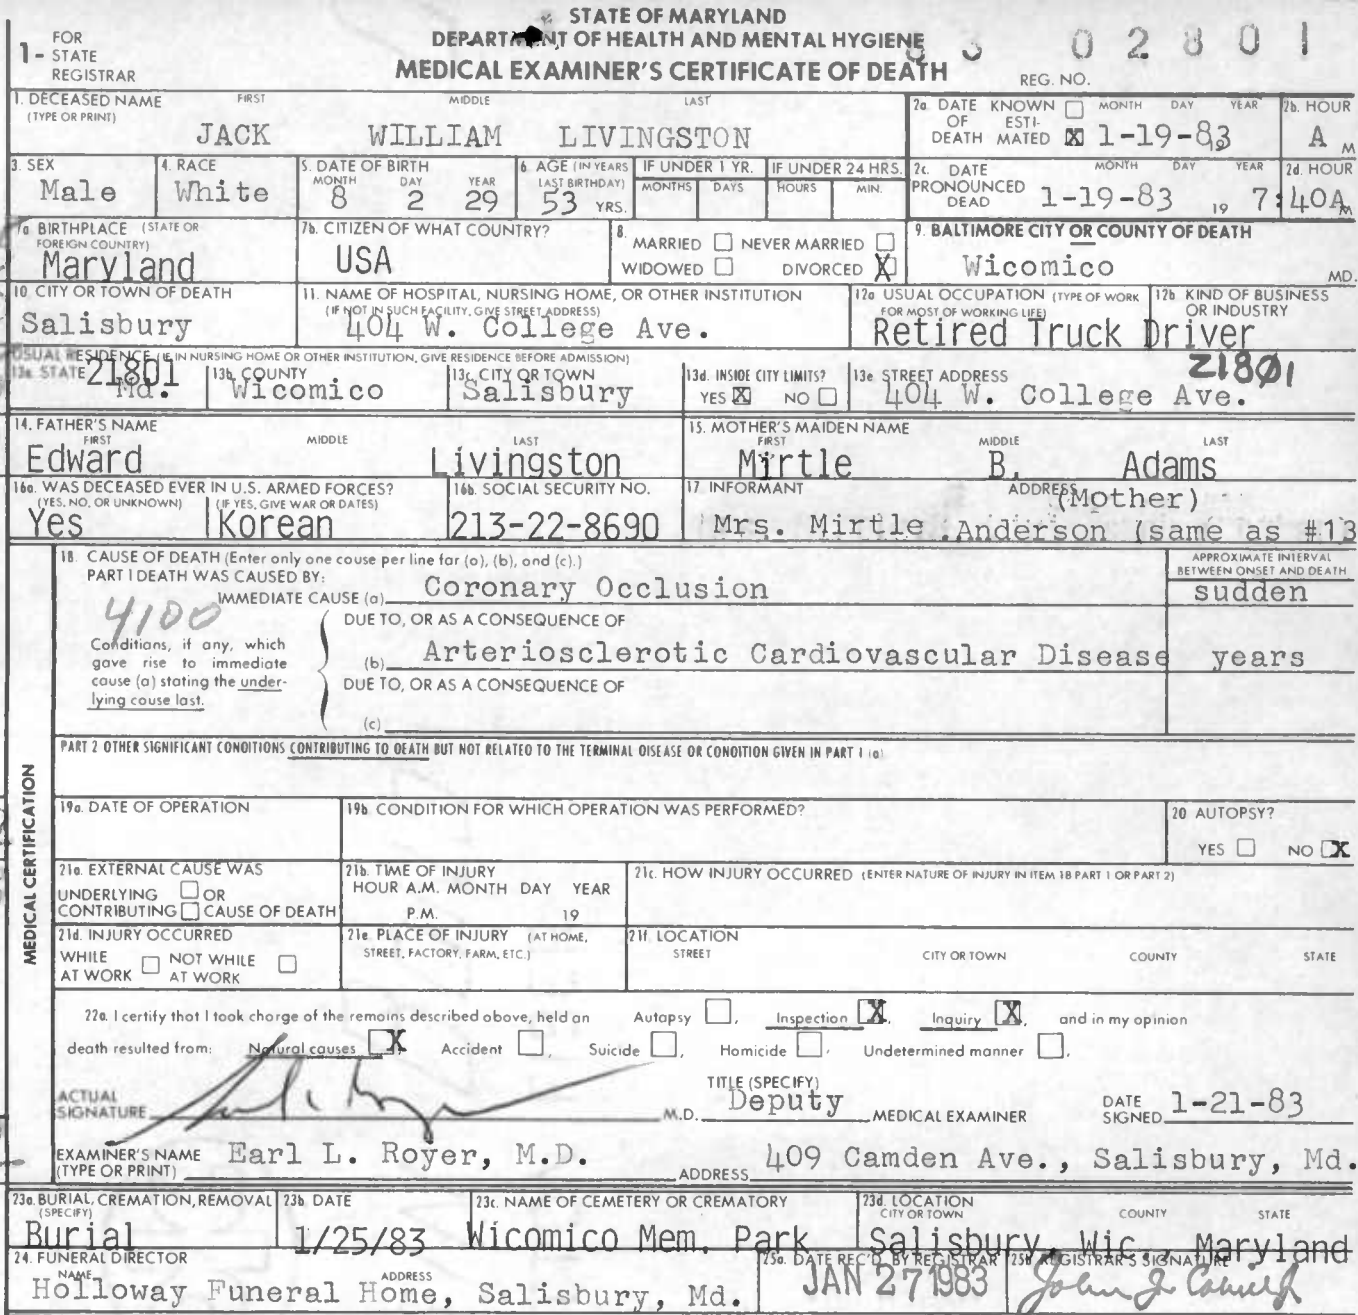 STATE OF MARYLAND
DEPARTMENT OF HEALTH AND MENTAL HYGIENE
MEDICAL EXAMINER'S CERTIFICATE OF DEATH
1- FOR STATE REGISTRAR
REG. NO. 83 02801
1. DECEASED NAME (TYPE OR PRINT) FIRST MIDDLE LAST
JACK WILLIAM LIVINGSTON
2a. DATE OF DEATH KNOWN ☐ ESTIMATED ☒ MONTH DAY YEAR 1-19-83
2b. HOUR A M
3. SEX Male
4. RACE White
5. DATE OF BIRTH MONTH DAY YEAR 8 2 29
6. AGE (IN YEARS LAST BIRTHDAY) 53 YRS.
IF UNDER 1 YR. MONTHS DAYS
IF UNDER 24 HRS. HOURS MIN.
2c. DATE PRONOUNCED DEAD MONTH DAY YEAR 1-19-83 19
2d. HOUR 7:40A M
7a BIRTHPLACE (STATE OR FOREIGN COUNTRY) Maryland
7b. CITIZEN OF WHAT COUNTRY? USA
8. MARRIED ☐ NEVER MARRIED ☐
WIDOWED ☐ DIVORCED ☒
9. BALTIMORE CITY OR COUNTY OF DEATH
Wicomico MD.
10. CITY OR TOWN OF DEATH
Salisbury
11. NAME OF HOSPITAL, NURSING HOME, OR OTHER INSTITUTION
(IF NOT IN SUCH FACILITY, GIVE STREET ADDRESS)
404 W. College Ave.
12a USUAL OCCUPATION (TYPE OF WORK FOR MOST OF WORKING LIFE)
12b. KIND OF BUSINESS OR INDUSTRY
Retired Truck Driver
USUAL RESIDENCE (IF IN NURSING HOME OR OTHER INSTITUTION, GIVE RESIDENCE BEFORE ADMISSION)
13a STATE 21801 Md.
13b. COUNTY Wicomico
13c. CITY OR TOWN Salisbury
13d. INSIDE CITY LIMITS? YES ☒ NO ☐
13e STREET ADDRESS 21801
404 W. College Ave.
14. FATHER'S NAME FIRST MIDDLE LAST
Edward Livingston
15. MOTHER'S MAIDEN NAME FIRST MIDDLE LAST
Mirtle B. Adams
16a. WAS DECEASED EVER IN U.S. ARMED FORCES?
(YES, NO, OR UNKNOWN) Yes
(IF YES, GIVE WAR OR DATES) Korean
16b. SOCIAL SECURITY NO.
213-22-8690
17 INFORMANT ADDRESS (Mother)
Mrs. Mirtle Anderson (same as #13
MEDICAL CERTIFICATION
18. CAUSE OF DEATH (Enter only one cause per line for (a), (b), and (c).)
PART I DEATH WAS CAUSED BY:
APPROXIMATE INTERVAL BETWEEN ONSET AND DEATH
IMMEDIATE CAUSE (a) Coronary Occlusion sudden
4100
DUE TO, OR AS A CONSEQUENCE OF
Conditions, if any, which gave rise to immediate cause (a) stating the underlying cause last.
(b) Arteriosclerotic Cardiovascular Disease years
DUE TO, OR AS A CONSEQUENCE OF
(c)
PART 2 OTHER SIGNIFICANT CONDITIONS CONTRIBUTING TO DEATH BUT NOT RELATED TO THE TERMINAL DISEASE OR CONDITION GIVEN IN PART 1 (a)
19a. DATE OF OPERATION
19b. CONDITION FOR WHICH OPERATION WAS PERFORMED?
20 AUTOPSY?
YES ☐ NO ☒
21a. EXTERNAL CAUSE WAS
UNDERLYING ☐ OR
CONTRIBUTING ☐ CAUSE OF DEATH
21b. TIME OF INJURY
HOUR A.M. MONTH DAY YEAR
P.M. 19
21c. HOW INJURY OCCURRED (ENTER NATURE OF INJURY IN ITEM 18 PART 1 OR PART 2)
21d. INJURY OCCURRED
WHILE AT WORK ☐ NOT WHILE AT WORK ☐
21e PLACE OF INJURY (AT HOME, STREET, FACTORY, FARM, ETC.)
21f. LOCATION
STREET CITY OR TOWN COUNTY STATE
22a. I certify that I took charge of the remains described above, held an Autopsy ☐, Inspection ☒, Inquiry ☒, and in my opinion
death resulted from: Natural causes ☒, Accident ☐, Suicide ☐, Homicide ☐, Undetermined manner ☐.
ACTUAL SIGNATURE M.D.
TITLE (SPECIFY) Deputy MEDICAL EXAMINER
DATE SIGNED 1-21-83
EXAMINER'S NAME (TYPE OR PRINT) Earl L. Royer, M.D.
ADDRESS 409 Camden Ave., Salisbury, Md.
23a. BURIAL, CREMATION, REMOVAL (SPECIFY) Burial
23b. DATE 1/25/83
23c. NAME OF CEMETERY OR CREMATORY
Wicomico Mem. Park
23d. LOCATION CITY OR TOWN COUNTY STATE
Salisbury, Wic., Maryland
24. FUNERAL DIRECTOR
NAME ADDRESS
Holloway Funeral Home, Salisbury, Md.
25a. DATE REC'D. BY REGISTRAR
JAN 27 1983
25b REGISTRAR'S SIGNATURE